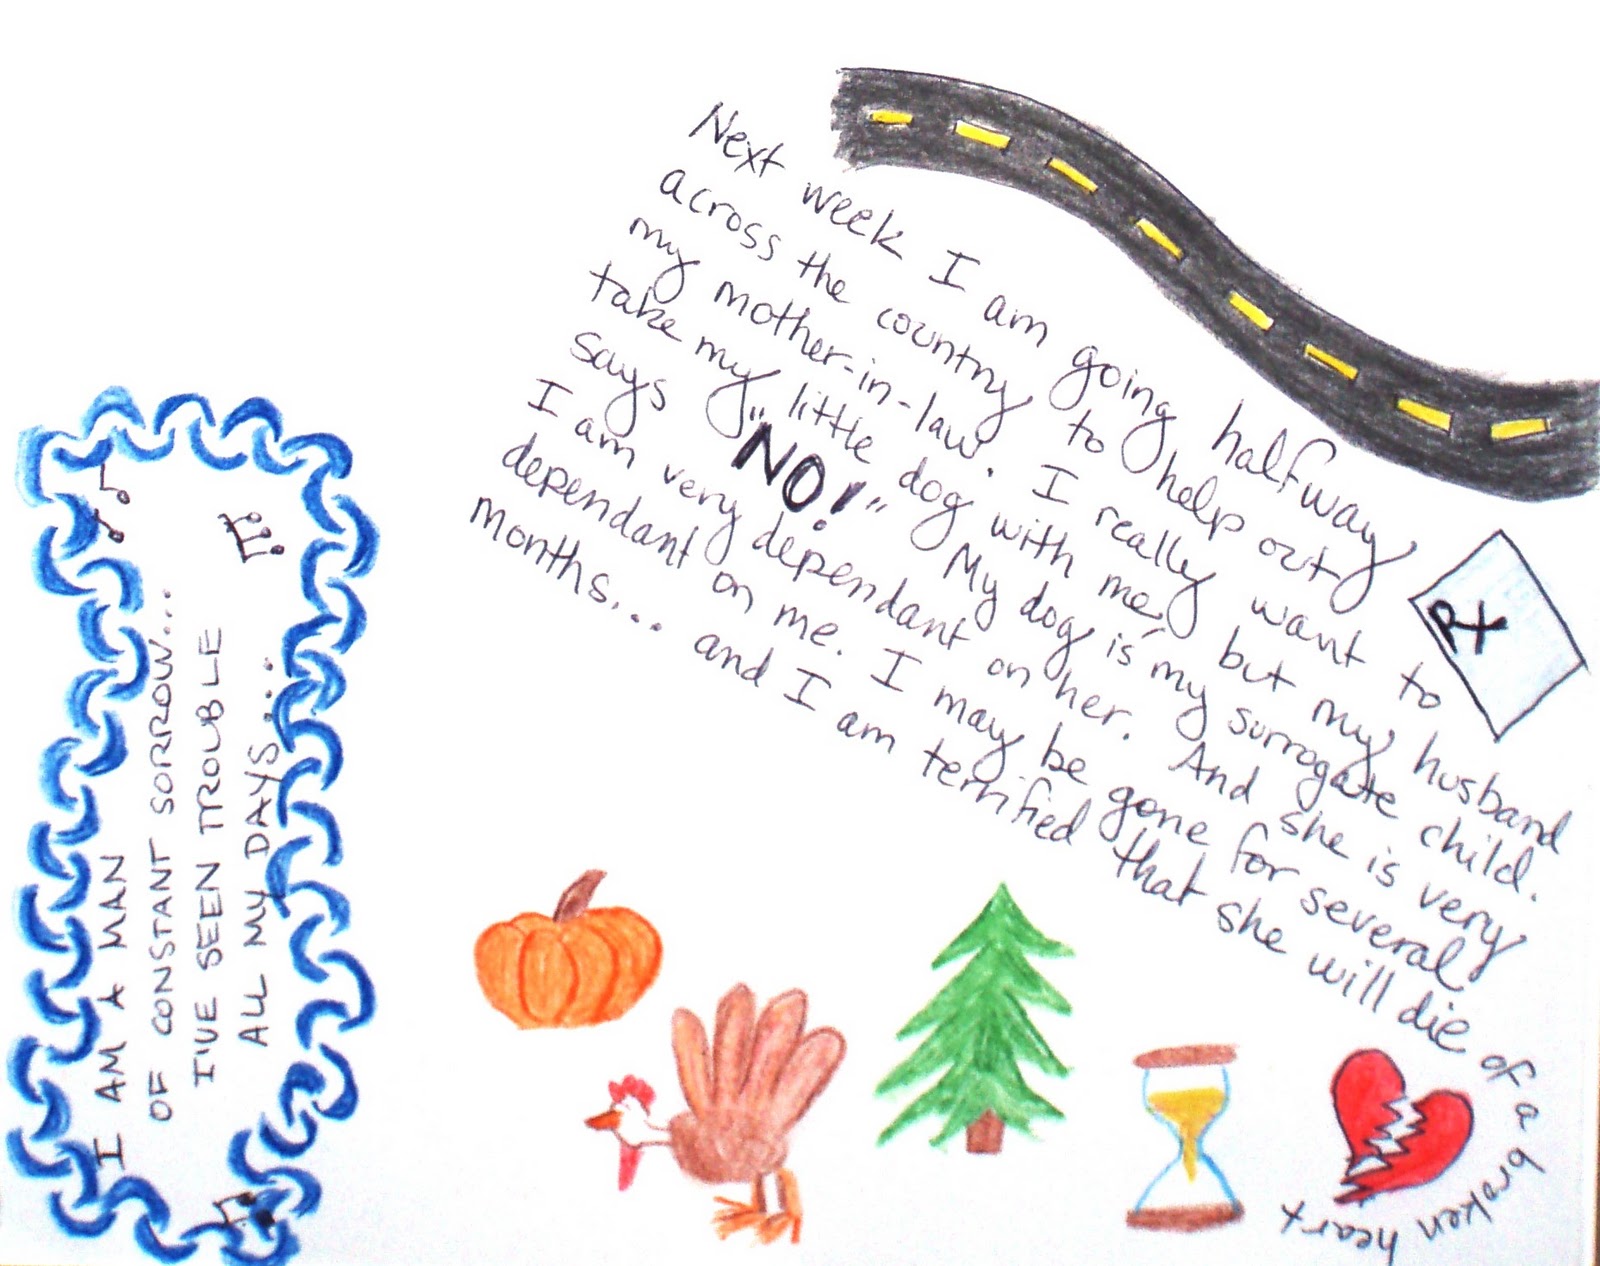 Next week I am going halfway
across the country to help out
my mother-in-law. I really want to
take my little dog with me, but my husband
says "NO!" My dog is my surrogate child.
I am very dependant on her. And she is very
dependant on me. I may be gone for several
months... and I am terrified that she will die of a broken heart
Rx
I AM A MAN
OF CONSTANT SORROW...
I'VE SEEN TROUBLE
ALL MY DAYS...